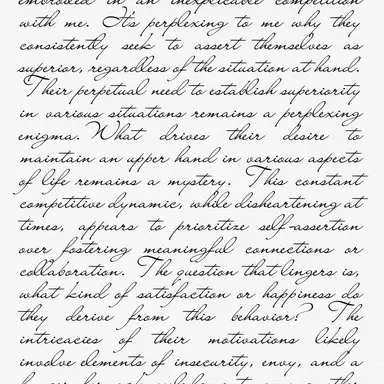 embroiled in an inexplicable competition
with me. It's perplexing to me why they
consistently seek to assert themselves as
superior, regardless of the situation at hand.
Their perpetual need to establish superiority
in various situations remains a perplexing
enigma. What drives their desire to
maintain an upper hand in various aspects
of life remains a mystery. This constant
competitive dynamic, while disheartening at
times, appears to prioritize self-assertion
over fostering meaningful connections or
collaboration. The question that lingers is,
what kind of satisfaction or happiness do
they derive from this behavior? The
intricacies of their motivations likely
involve elements of insecurity, envy, and a